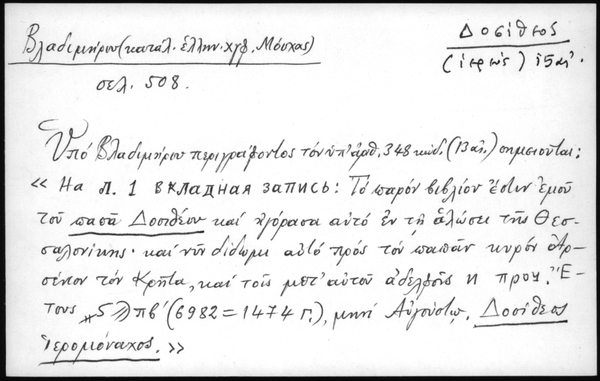 Βλαδιμήρου (κατάλ. ἑλλην. χγφ. Μόσχας)
σελ. 508.
Δοσίθεος
(ἱερεὺς) 15 αἰ.
Ὑπὸ Βλαδιμήρου περιγράφοντος τὸν ὑπ' ἀριθ. 348 κώδ. (13 αἰ.) σημειοῦται:
« На л. 1 вкладная запись: Τὸ παρὸν βιβλίον ἔστιν ἐμοῦ
τοῦ παπᾶ Δοσιθέου καὶ ἠγόρασα αὐτὸ ἐν τῇ ἁλώσει τῆς Θεσ-
σαλονίκης· καὶ νῦν δίδωμι αὐτὸ πρὸς τὸν παπᾶν κυρὸν Ἀρ-
σένιον τὸν Κρῆτα, καὶ τοῖς μετ' αὐτοῦ ἀδελφοῖς и проч. Ἔ-
τους ͵ϛϠπβ΄ (6982 = 1474 г.), μηνὶ Αὐγούστῳ. Δοσίθεος
Ἱερομόναχος. »